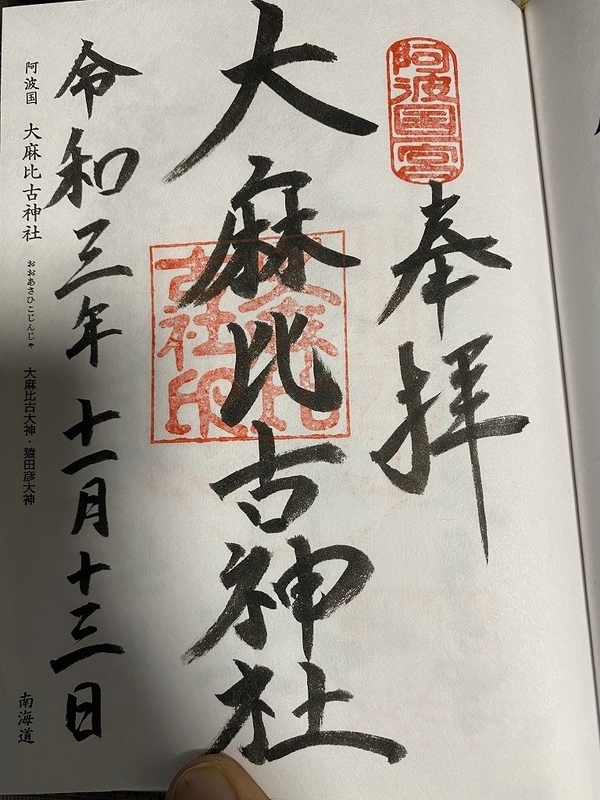 阿波国一宮
奉拝
大麻比古神社
大麻比
古社印
令和三年十一月十三日
阿波国 大麻比古神社 おおあさひこじんじゃ 大麻比古大神・猨田彦大神 南海道